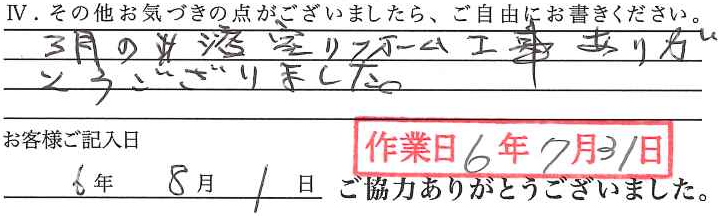 Ⅳ.その他お気づきの点がございましたら、ご自由にお書きください。
3月の浴室リフォーム工事ありが
とうございました。
お客様ご記入日
作業日6年7月31日
6年 8月 1日 ご協力ありがとうございました。